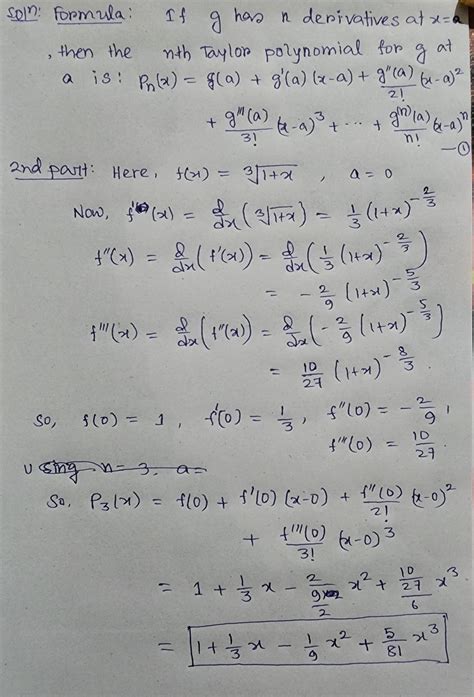 Soln: Formula: If g has n derivatives at x=a
, then the nth Taylor polynomial for g at
a is: Pn(x) = g(a) + g'(a) (x-a) + g''(a)/2! (x-a)^2
+ g'''(a)/3! (x-a)^3 + ... + g^(n)(a)/n! (x-a)^n —①
2nd part: Here, f(x) = ∛(1+x) , a = 0
Now, f'(x) = d/dx (∛(1+x)) = 1/3 (1+x)^(-2/3)
f''(x) = d/dx (f'(x)) = d/dx (1/3 (1+x)^(-2/3))
= -2/9 (1+x)^(-5/3)
f'''(x) = d/dx (f''(x)) = d/dx (-2/9 (1+x)^(-5/3))
= 10/27 (1+x)^(-8/3).
So, f(0) = 1, f'(0) = 1/3, f''(0) = -2/9,
f'''(0) = 10/27.
Using n=3, a=
So, P3(x) = f(0) + f'(0) (x-0) + f''(0)/2! (x-0)^2
+ f'''(0)/3! (x-0)^3
= 1 + 1/3 x - (2/9)/2 x^2 + (10/27)/6 x^3
= 1 + 1/3 x - 1/9 x^2 + 5/81 x^3